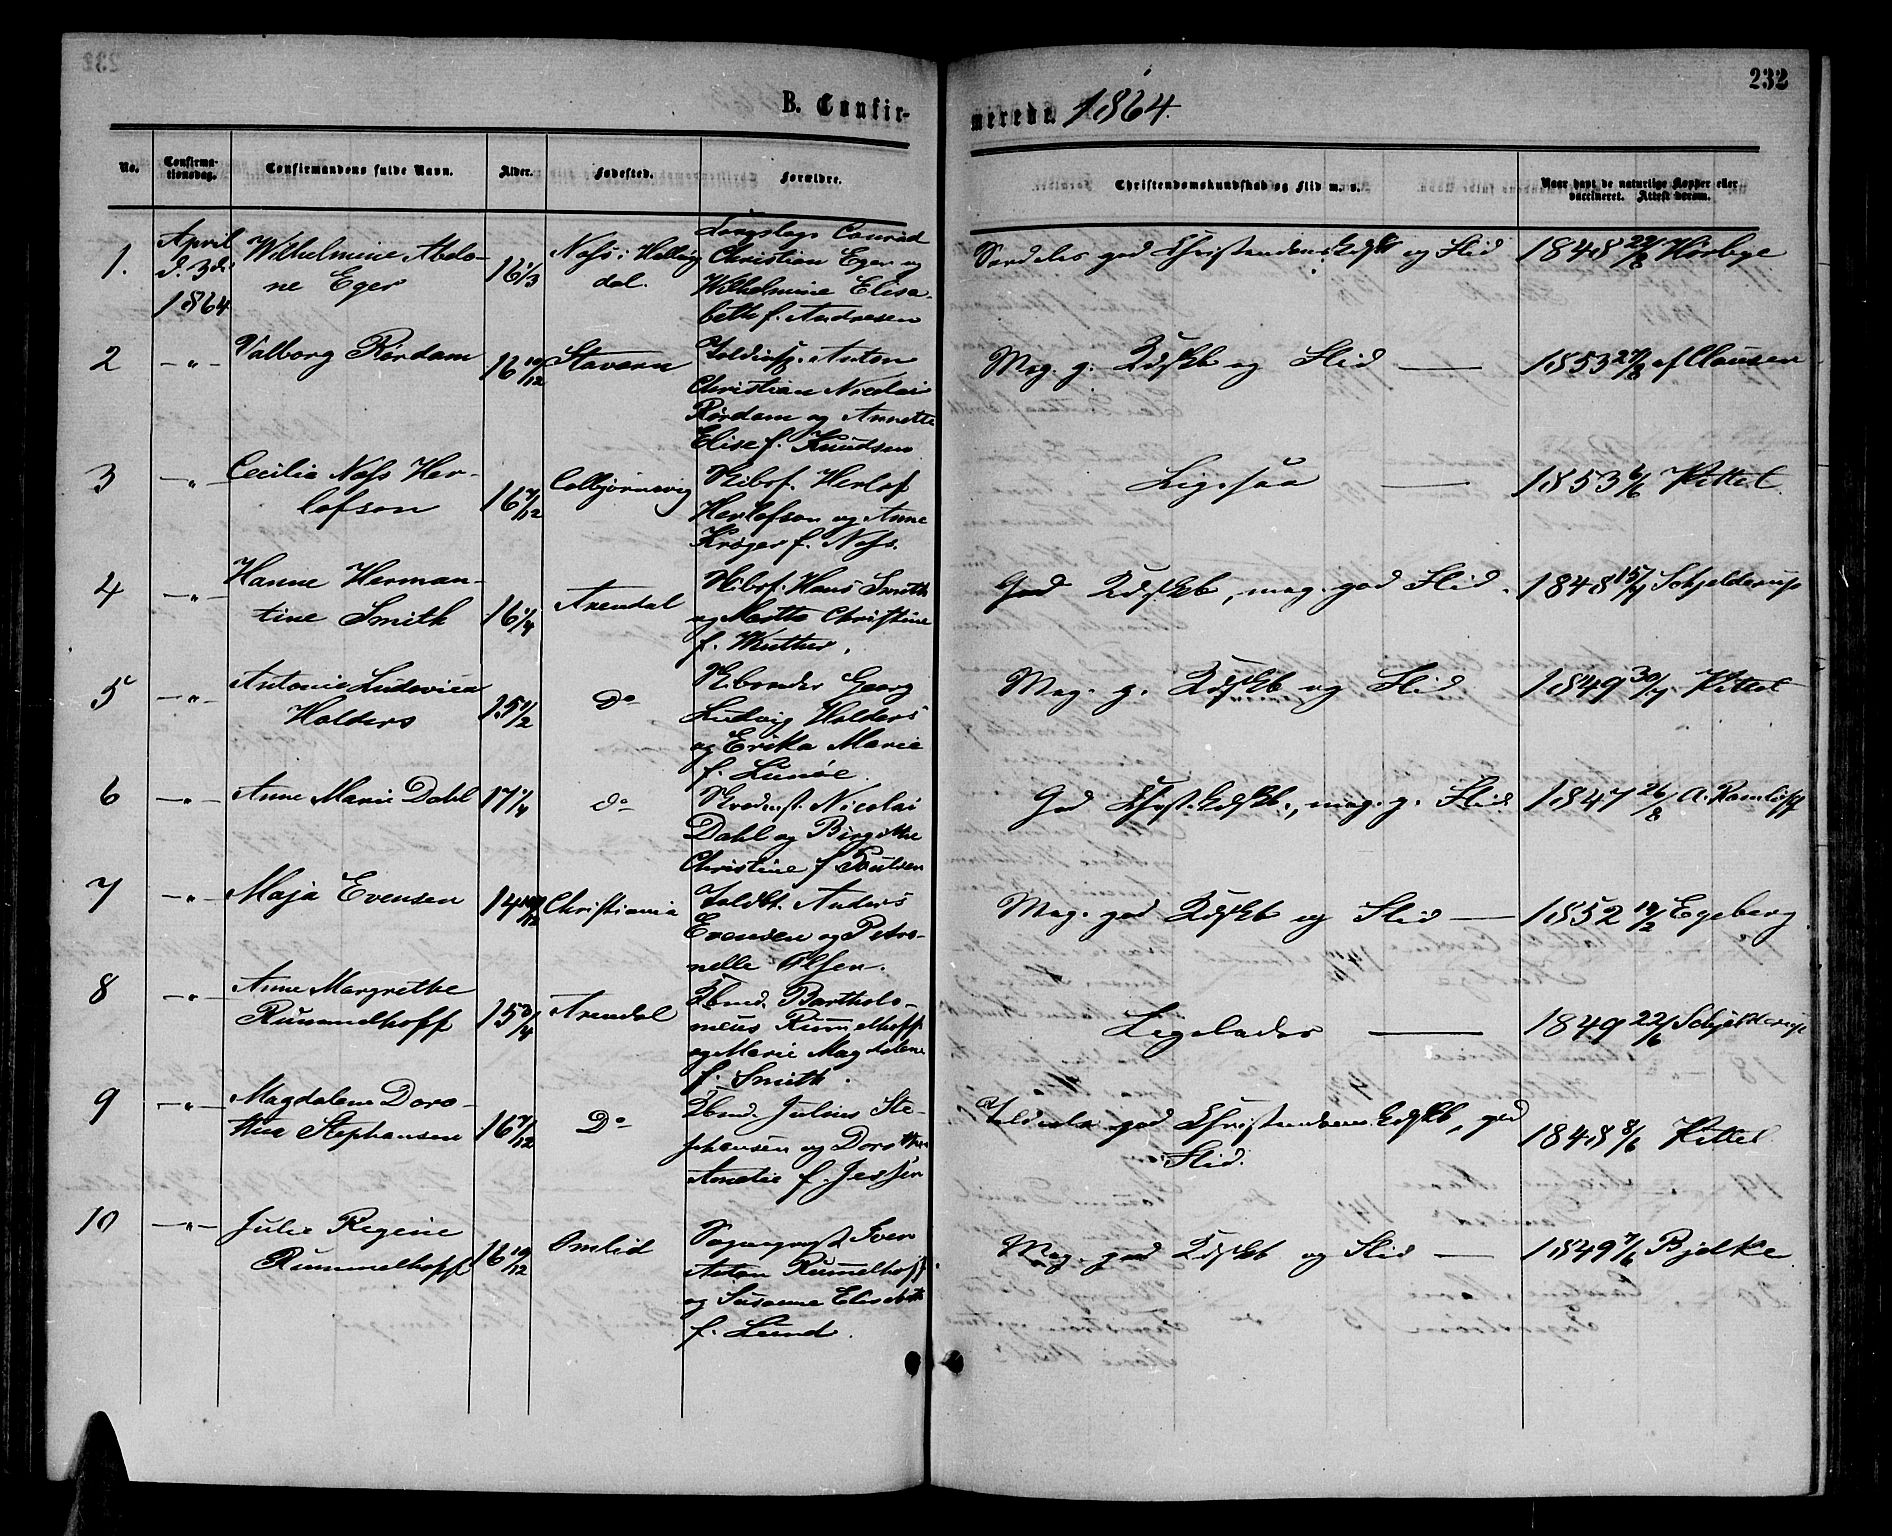 232
B. Confirmerede 1864.
No. Confirmationsdag. Confirmandens fulde Navn. Alder. Fødested. Forældre. Christendomskundskab og Flid m. v. Naar havt de naturlige Kopper eller vaccineret. Attest derom.
1. April d. 3di 1864 Wilhelmine Abelone Eger 16 1/3 Næs i Hallingdal. Conrad Christian Eger og Wilhelmine Elisabeth f. Andresen Særdeles god Christendomskdsk og Flid 1848 22/8 Hörbye
2 -"- Valborg Rørdam 16 10/12 Stavern Toldinsp. Anton Christian Nicolai Rørdam og Annette Elise f. Knudsen Meg. g. Kdskb og Flid — 1853 27/8 af Clausen
3 -"- Cecilie Næss Herlofson 16 7/12 Colbjørnsvig Skibsf. Herlof Herlofson og Anne Krøger f. Næss. Ligesaa — 1853 6/6 Kittel
4 -"- Hanne Hermantine Smith 16 1/4 Arendal Skibsf. Hans Smith og Marthe Christine f. God Kdskb, meg. god Flid. 1848 15/7 Schjelderup
5 -"- Antonie Ludovica Holders 15 1/2 Do Georg Ludvig Holders og Erika Marie f. Lunøe. Meg. g. Kdskb og Flid 1849 30/7 Kittel
6 -"- Anne Marie Dahl 17 1/4 do Nicolai Dahl og Birgitthe Christine f. Poulsen God Christ. kdskb., meg. g. Flid. 1847 26/8 A. Ramløff
7 -"- Maja Evensen 14 10/12 Christiania Toldbt. Anders Evensen og Petronelle Olsen. Meg. god Kdskb og Flid — 1852 19/2 Egeberg
8 -"- Anne Margrethe Rummelhoff 15 3/4 Arendal Kbmd. Bartholomeus Rummelhoff og Marie Magdalene f. Smith. Ligeledes — 1849 22/6 Schjelderup
9 -"- Magdalene Dorothea Stephansen 16 7/12 Do Kbmd. Julius Stephansen og Dorothea Amalie f. Jessen Toldeles god Christendomskdskb, god Flid. 1848 8/6 Kittel
10 -"- Julie Regine Rummelhoff 16 10/12 Omlid Sogneprst. Iver Anton Rummelhoff og Susanne Elisabeth f. Lund. Meg. god Kdskb og Flid — 1849 7/6 Bjelke